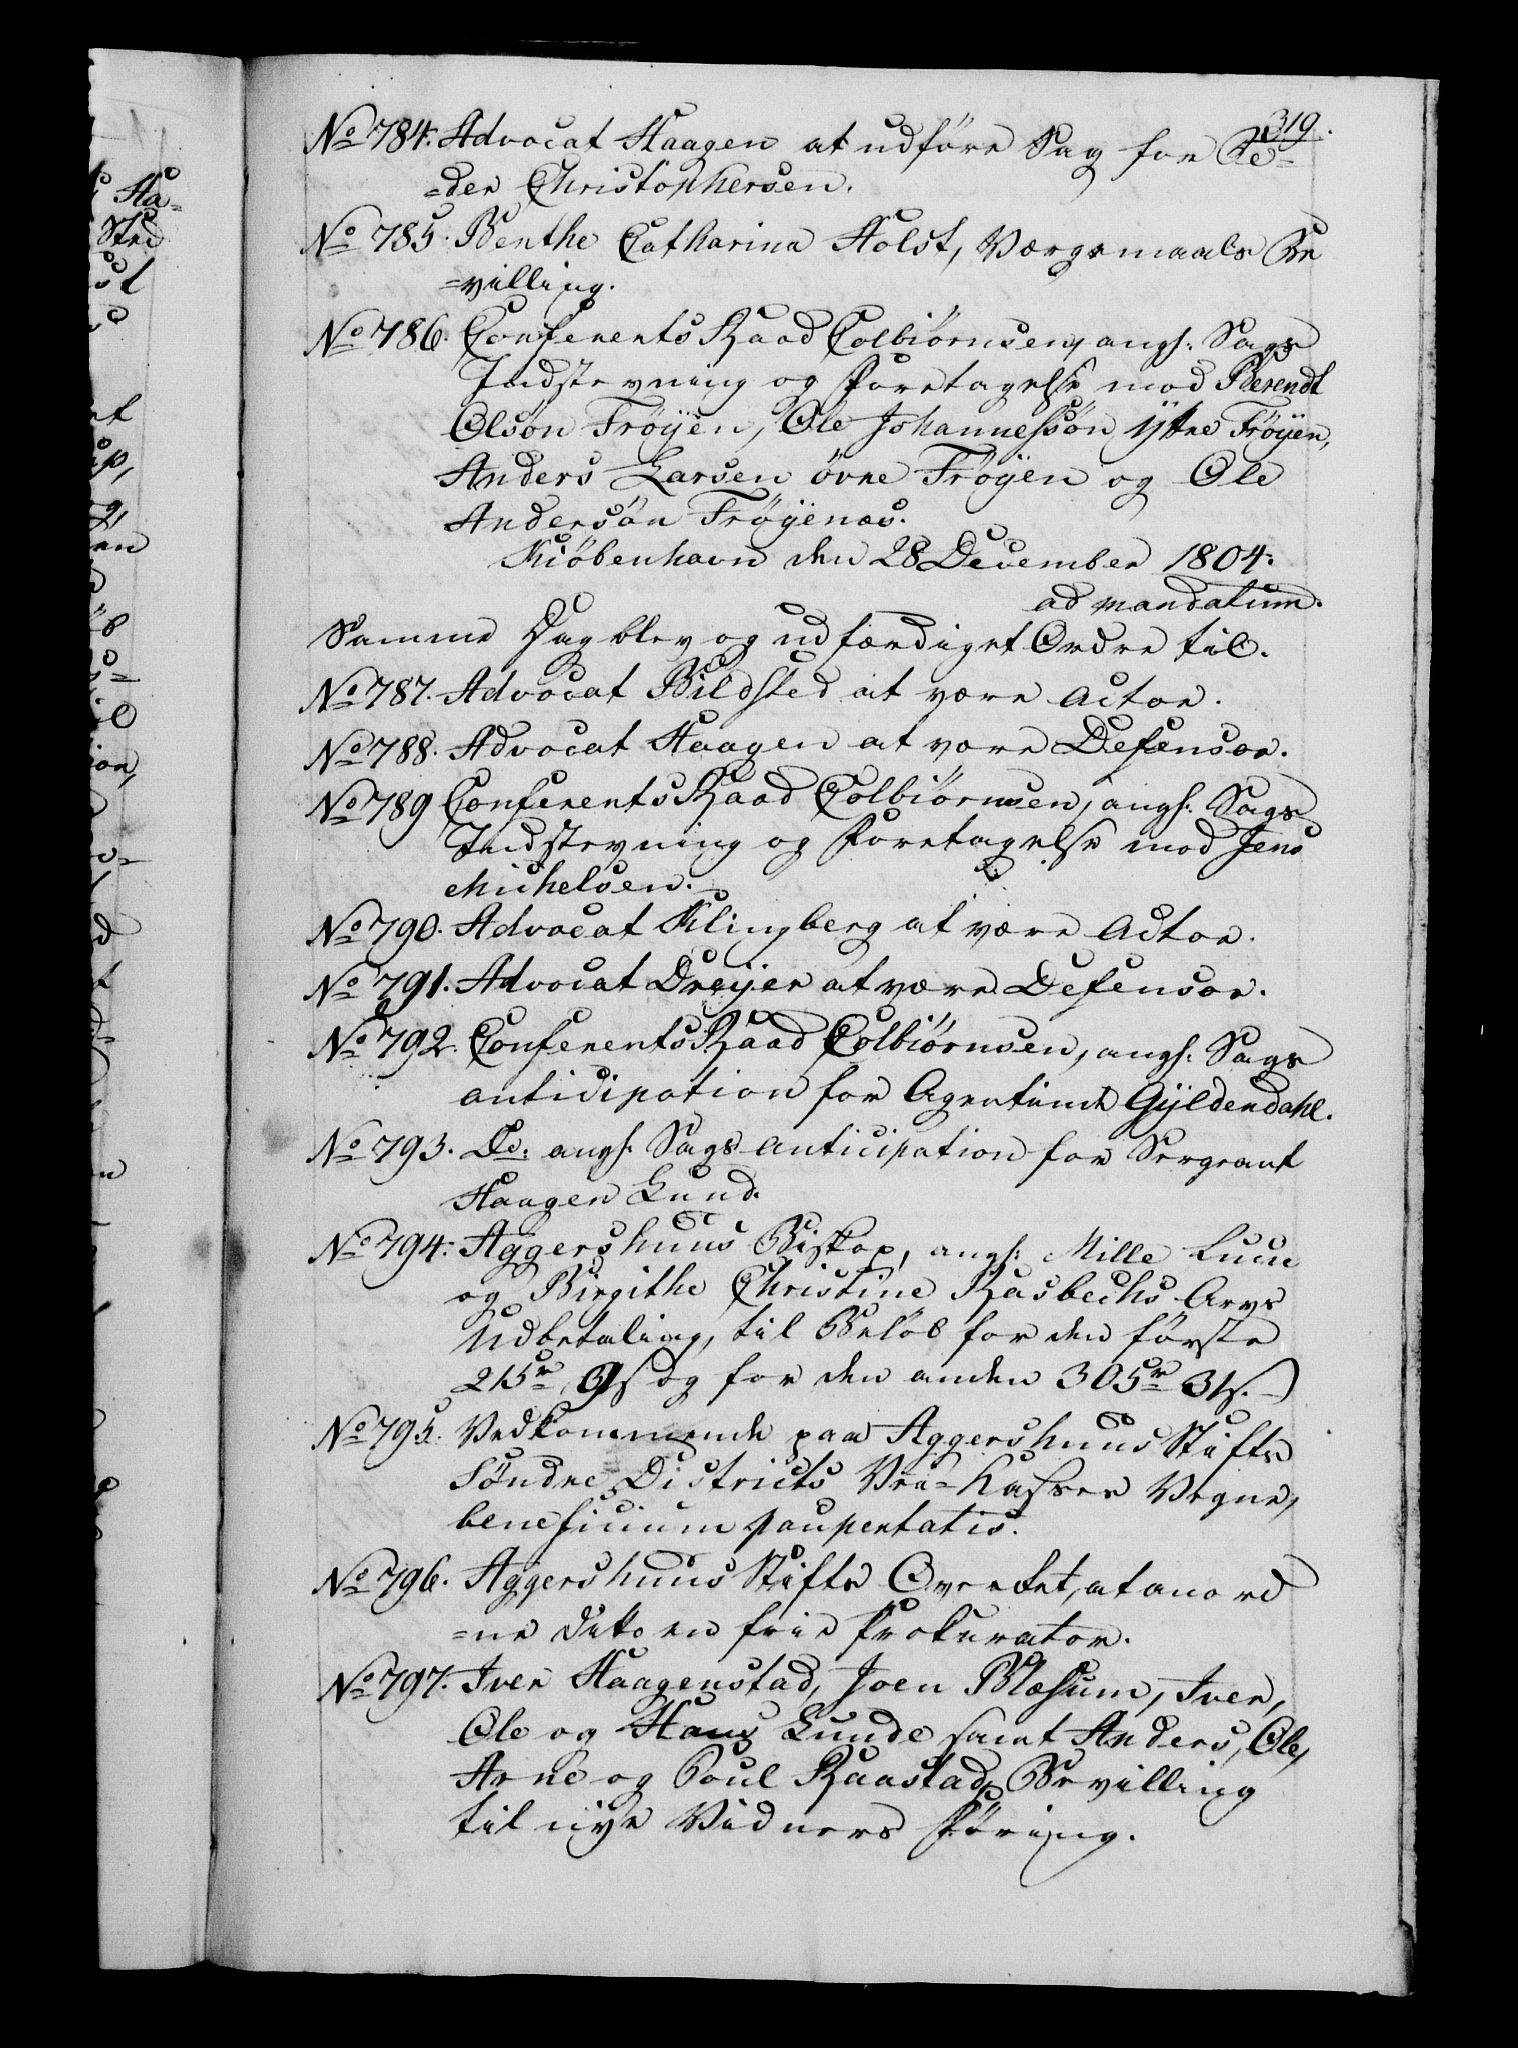 319.
No 784. Advocat Haagen at udföre Sag for Pe-
=der Christophersen.
No 785. Benthe Catharina Holst, Værgemaals Be
=villing.
No 786. Conferents Raad Colbiørnsen, angl. Sags
Indstevning og Foretagelse mod Berendt
Olsön Fröyen, Ole Johannessön ÿtre Fröyen,
Anders Larsen övre Fröyen og Ole
Andersön Fröyenæs.
Kiöbenhavn den 28 December 1804.
ad mandatum.
Samme Dag blev og udfærdiget Ordre til.
No 787. Advocat Bildsted at være Actor.
No 788. Advocat Haagen at være Defensor.
No 789 Conferents Raad Colbiörnsen, angl. Sags
Indstevning og Foretagelse mod Jens
Michelsen.
No 790. Advocat Klingberg at være Actor.
No 791. Advocat Dreyer at være Defensor.
No 792. Conferents Raad Colbiörnsen, angl. Sags
anticipation for Agentinde Gÿldendahl.
No 793. Do. angl. Sags anticipation for Sergeant
Haagen Lund.
No 794. Aggershuus Biskop, angl. Mille Lucie
og Birgithe Christine Rasbechs Arvs
Udbetaling, til Belöb for den förste
215 r 9 s og for den anden 305 r 31 s.
No 795. Vedkommende paa Aggershuus Stifts
Söndre Districts Vei-Kasses Vegne,
beneficium paupertatis.
No 796. Aggershuus Stifts Övrighet, at anord
=ne dito en frie Prokurator.
No 797. Iver Haagenstad, Joen Blæsum, Iver,
Ole og Hans Lunde samt Anders, Ole,
Arne og Poul Raastad, Bevilling
til nye Vidners Föring.